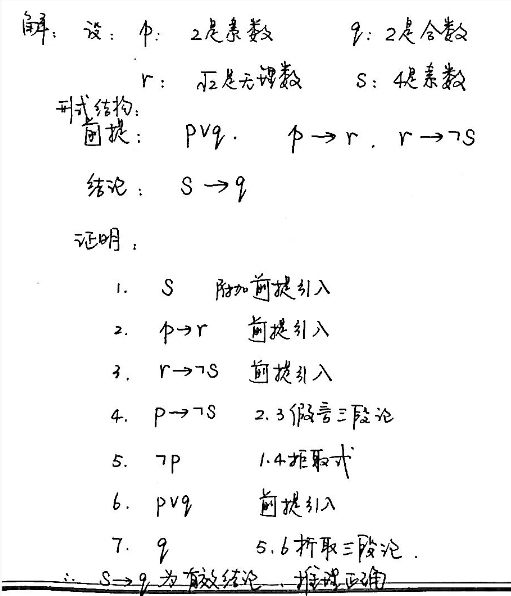 解: 设: p: 2是素数 q: 2是合数
r: √2是无理数 s: 4是素数
形式结构:
前提: p∨q. p→r. r→¬s
结论: s→q
证明:
1. s 附加前提引入
2. p→r 前提引入
3. r→¬s 前提引入
4. p→¬s 2.3假言三段论
5. ¬p 1.4拒取式
6. p∨q 前提引入
7. q 5.6析取三段论.
∴ s→q 为有效结论, 推理正确